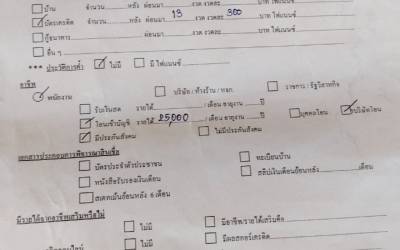 บ้าน จำนวน......หลัง ผ่อนมา......งวด งวดละ......บาท ไฟแนนซ์
บัตรเครดิต จำนวน......หลัง ผ่อนมา 13 งวด งวดละ 300 บาท ไฟแนนซ์
กู้ธนาคาร ผ่อนมา......งวด งวดละ......บาท ไฟแนนซ์
อื่น ๆ
*** ประวัติการค้ำ ไม่มี มี ไฟแนนซ์
อาชีพ
พนักงาน บริษัท / ห้างร้าน / หจก. ราชการ / รัฐวิสาหกิจ
รับเงินสด รายได้ / เดือน อายุงาน ปี
โอนเข้าบัญชี รายได้ 25,000 / เดือน อายุงาน ปี บุคคลโอน บริษัทโอน
มีประกันสังคม ไม่มีประกันสังคม
เอกสารประกอบการพิจารณาสินเชื่อ
บัตรประจำตัวประชาชน ทะเบียนบ้าน
หนังสือรับรองเงินเดือน สลิปเงินเดือนย้อนหลัง เดือน
สเตทเม้นย้อนหลัง 6 เดือน
มีรายได้จากอาชีพเสริมหรือไม่
ไม่มี มีอาชีพ/รายได้เสริมคือ
ไม่มี